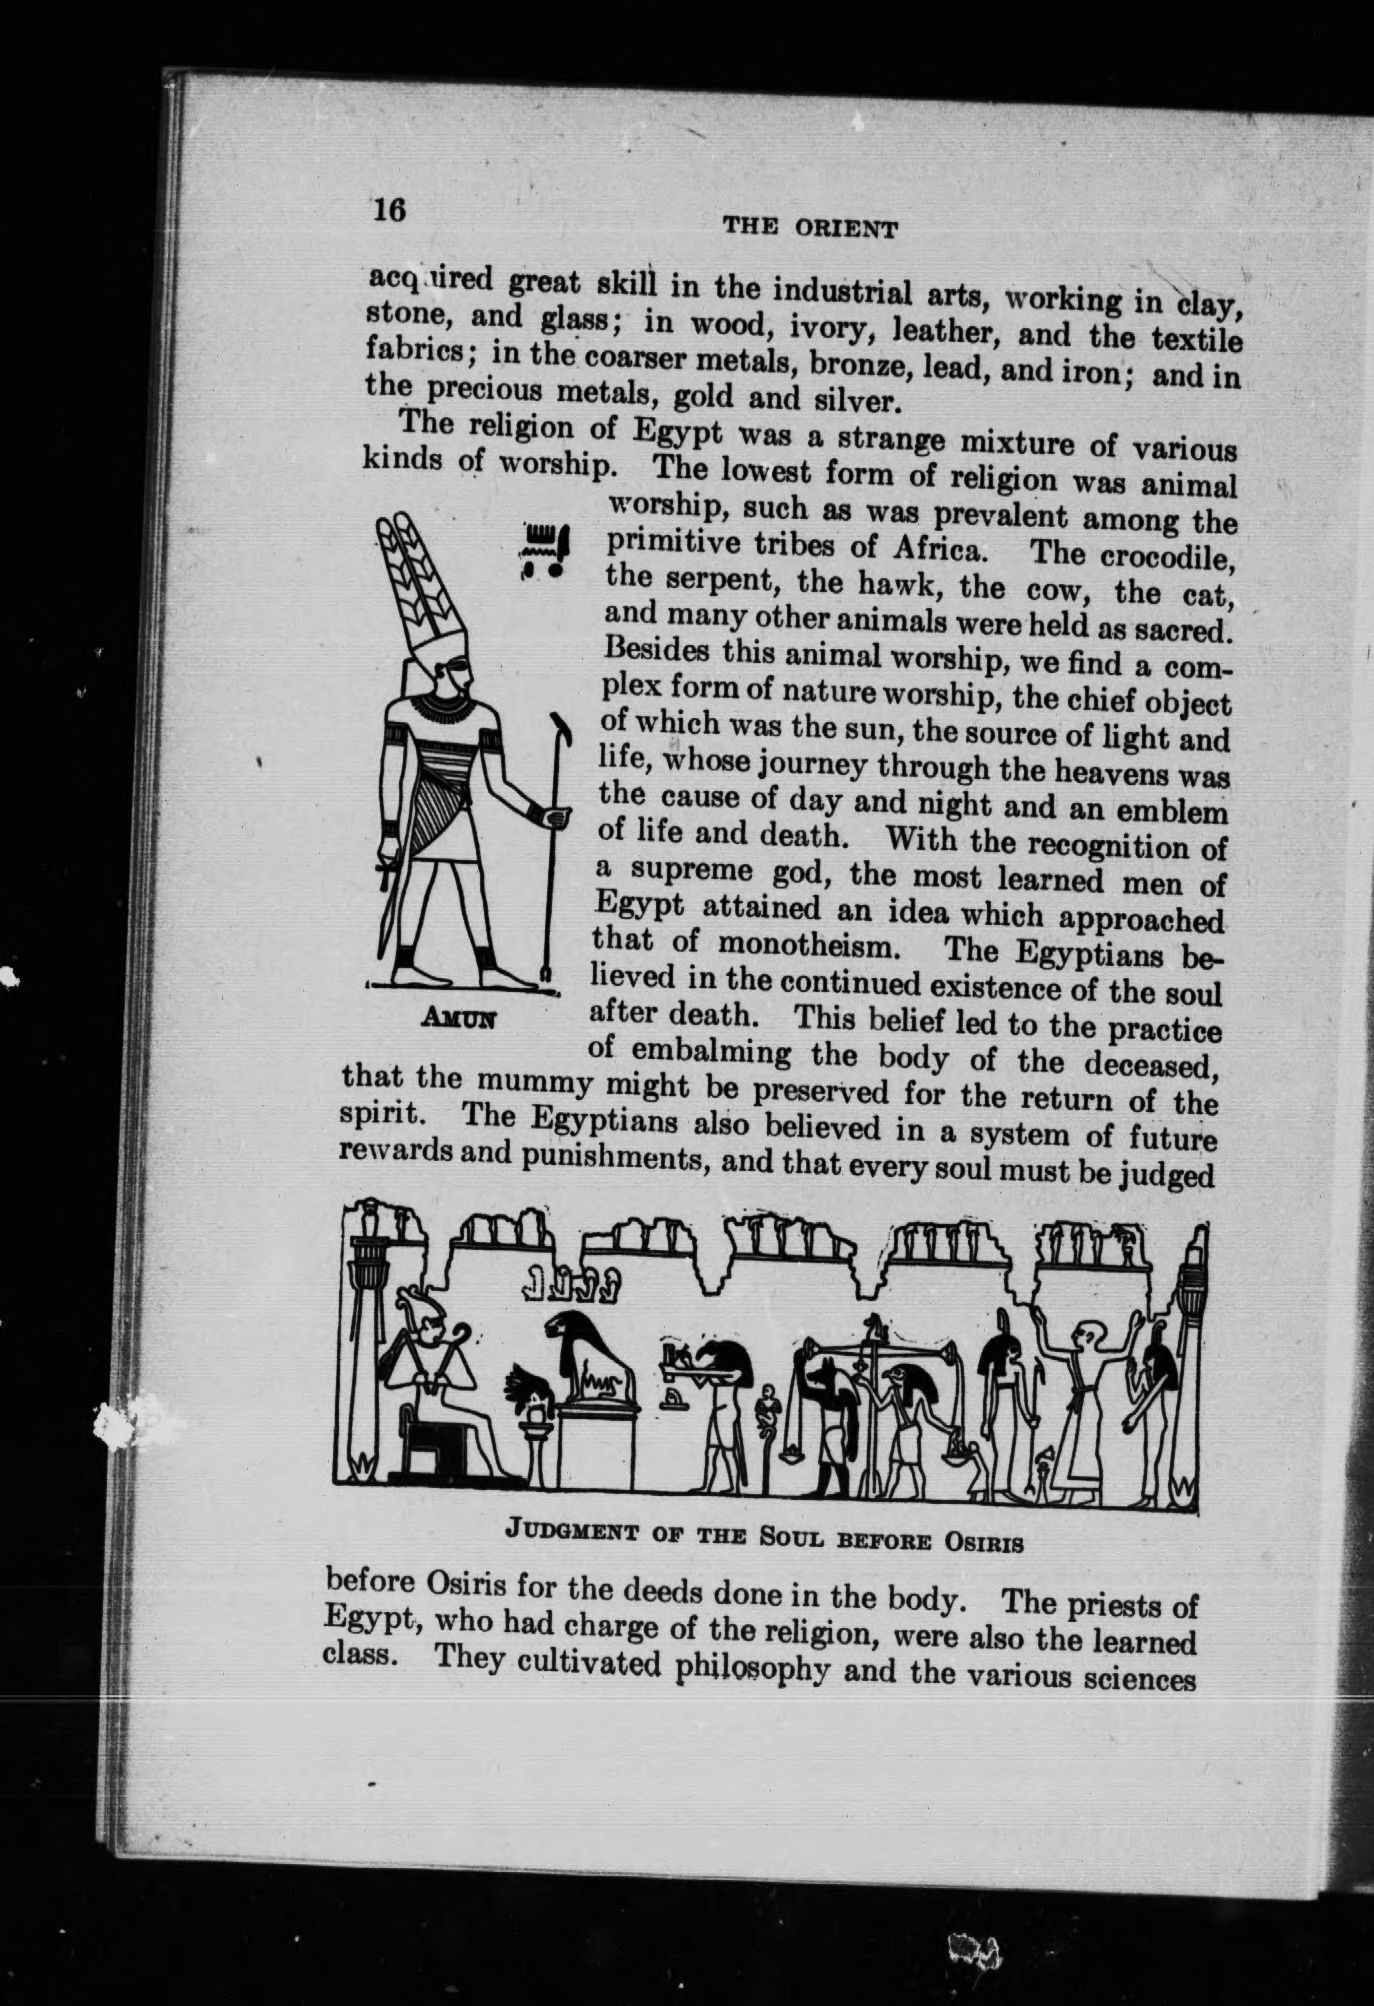 16
THE ORIENT
acquired great skill in the industrial arts, working in clay,
stone, and glass; in wood, ivory, leather, and the textile
fabrics; in the coarser metals, bronze, lead, and iron; and in
the precious metals, gold and silver.
The religion of Egypt was a strange mixture of various
kinds of worship. The lowest form of religion was animal
worship, such as was prevalent among the
primitive tribes of Africa. The crocodile,
the serpent, the hawk, the cow, the cat,
and many other animals were held as sacred.
Besides this animal worship, we find a com-
plex form of nature worship, the chief object
of which was the sun, the source of light and
life, whose journey through the heavens was
the cause of day and night and an emblem
of life and death. With the recognition of
a supreme god, the most learned men of
Egypt attained an idea which approached
that of monotheism. The Egyptians be-
lieved in the continued existence of the soul
after death. This belief led to the practice
of embalming the body of the deceased,
AMUN
that the mummy might be preserved for the return of the
spirit. The Egyptians also believed in a system of future
rewards and punishments, and that every soul must be judged
JUDGMENT OF THE SOUL BEFORE OSIRIS
before Osiris for the deeds done in the body. The priests of
Egypt, who had charge of the religion, were also the learned
class. They cultivated philosophy and the various sciences